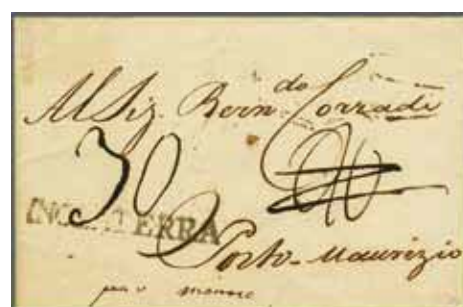 Al Sig. Bern.do Corradi
30
INGLATERRA
Porto-Maurizio